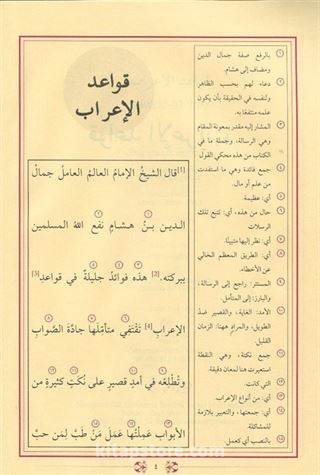 قواعد
الإعراب
[1]قال الشيخُ الإمامُ العالمُ العاملُ جمالُ
الدين بنُ هشامٍ نفع اللهُ المسلمين
ببركته. [2] هذه فوائدُ جليلةٌ في قواعدِ [3]
الإعرابِ [4] تَقْتَفِي متأمِّلَها جادَّةَ الصَّوابِ
وتُطْلِعُه في أمدٍ قصيرٍ على نُكَتٍ كثيرةٍ من
الأبوابِ عَمِلْتُها عَمَلَ مَنْ طَبَّ لِمَن حَبَّ
١ بالرفع صفة جمال الدين
ومضاف إلى هشام.
٢ دعاء لهم بحسب الظاهر
ولنفسه في الحقيقة بأن يكون
علمه منتفعًا به.
٣ المشار إليه مقدر بمعونة المقام
وهي الرسالة، وجملة ما في
الكتاب من هذه محكي القول
٤ جمع فائدة وهي ما استفدت
من علم أو مال.
٥ أي: عظيمة.
٦ حال من هذه، أي: تتبع تلك
الرسالات
٧ أي: نظر إليها متبينًا.
٨ أي: الطريق المعظم الخالي
عن الأخطاء.
٩ المستتر: راجع إلى الرسالة،
والبارز: إلى المتأمل
١٠ الأمد: الغاية، والقصير ضدّ
الطويل، والمراد ههنا: الزمان
القليل.
١١ جمع نكتة، وهي النقطة
استعيرت هنا لمعان دقيقة.
١٢ التي كانت.
١٣ أي: من أنواع الإعراب.
١٤ أي: جمعتها، والتعبير بلازمة
للمشاكلة.
١٥ بالنصب أي كعمل.
kitapstore.com
٤